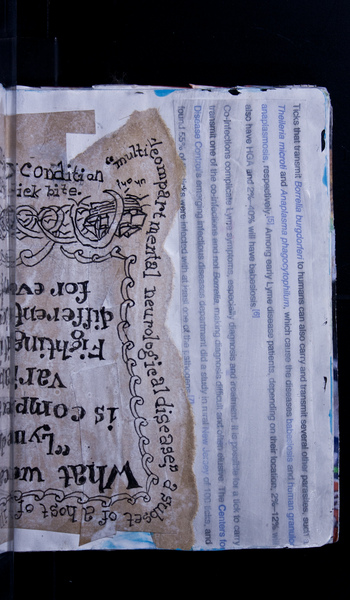 Ticks that transmit Borrelia burgdorferi to humans can also carry and transmit several other parasites, such
Theileria microti and Anaplasma phagocytophilum, which cause the diseases babesiosis and human granulo
anaplasmosis, respectively.[5] Among early Lyme disease patients, depending on their location, 2%–12% wi
also have HGA and 2%–40% will have babesiosis.[6]
Co-infections complicate Lyme symptoms, especially diagnosis and treatment. It is possible for a tick to carry
transmit one of the co-infections and not Borrelia, making diagnosis difficult and often elusive. The Centers fo
Disease Control's emerging infectious diseases department did a study in rural New Jersey of 100 ticks, and
found 55% of were infected with at least one of the
condition
tick bite.
"multi
compartmental neurological disease,"
of a host of
What
"Lyme
is
Fighting
different
for